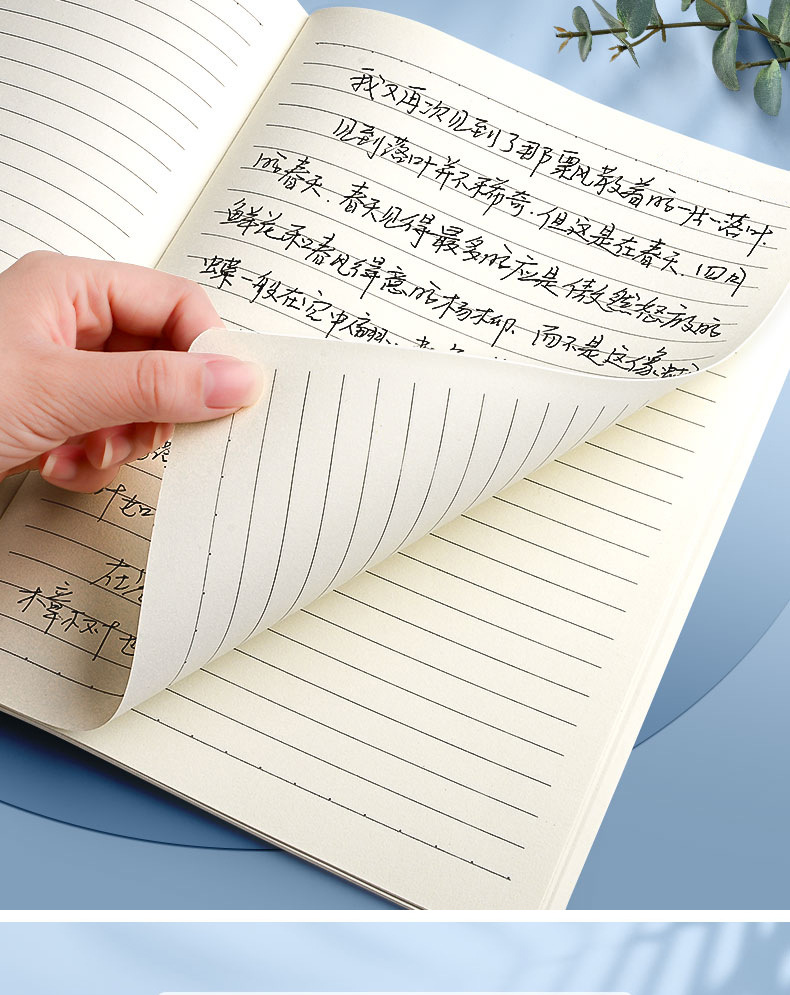 我又再次见到了那飘散着的一片落叶.
见到落叶并不稀奇.但这是在春天.四月
的春天.春天见得最多的应是傲然怒放的
鲜花和春风得意的杨柳.而不是这像蝴
蝶一般在空中翩
叶如
在
樟树叶也